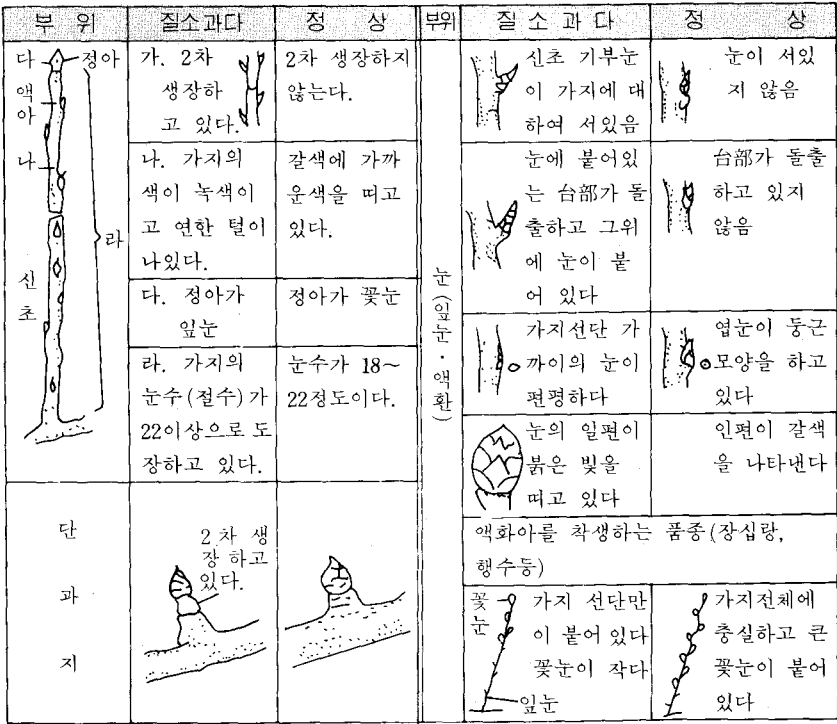 부 위
질소과다
정 상
다
정아
액
아
나
라
신
초
가. 2차
생장하
고 있다.
2차 생장하지
않는다.
나. 가지의
색이 녹색이
고 연한 털이
나있다.
갈색에 가까
운색을 띠고
있다.
다. 정아가
잎눈
정아가 꽃눈
라. 가지의
눈수(절수)가
22이상으로 도
장하고 있다.
눈수가 18~
22정도이다.
단
과
지
2차 생
장 하고
있다.
부위
질 소 과 다
정 상
눈(잎눈·액화)
신초 기부눈
이 가지에 대
하여 서있음
눈이 서있
지 않음
눈에 붙어있
는 台部가 돌
출하고 그위
에 눈이 붙
어 있다
台部가 돌출
하고 있지
않음
가지선단 가
까이의 눈이
편평하다
엽눈이 둥근
모양을 하고
있다
눈의 일편이
붉은 빛을
띠고 있다
인편이 갈색
을 나타낸다
액화아를 착생하는 품종(장십랑,
행수등)
꽃
눈
가지 선단만
이 붙어 있다
꽃눈이 작다
잎눈
가지전체에
충실하고 큰
꽃눈이 붙어
있다